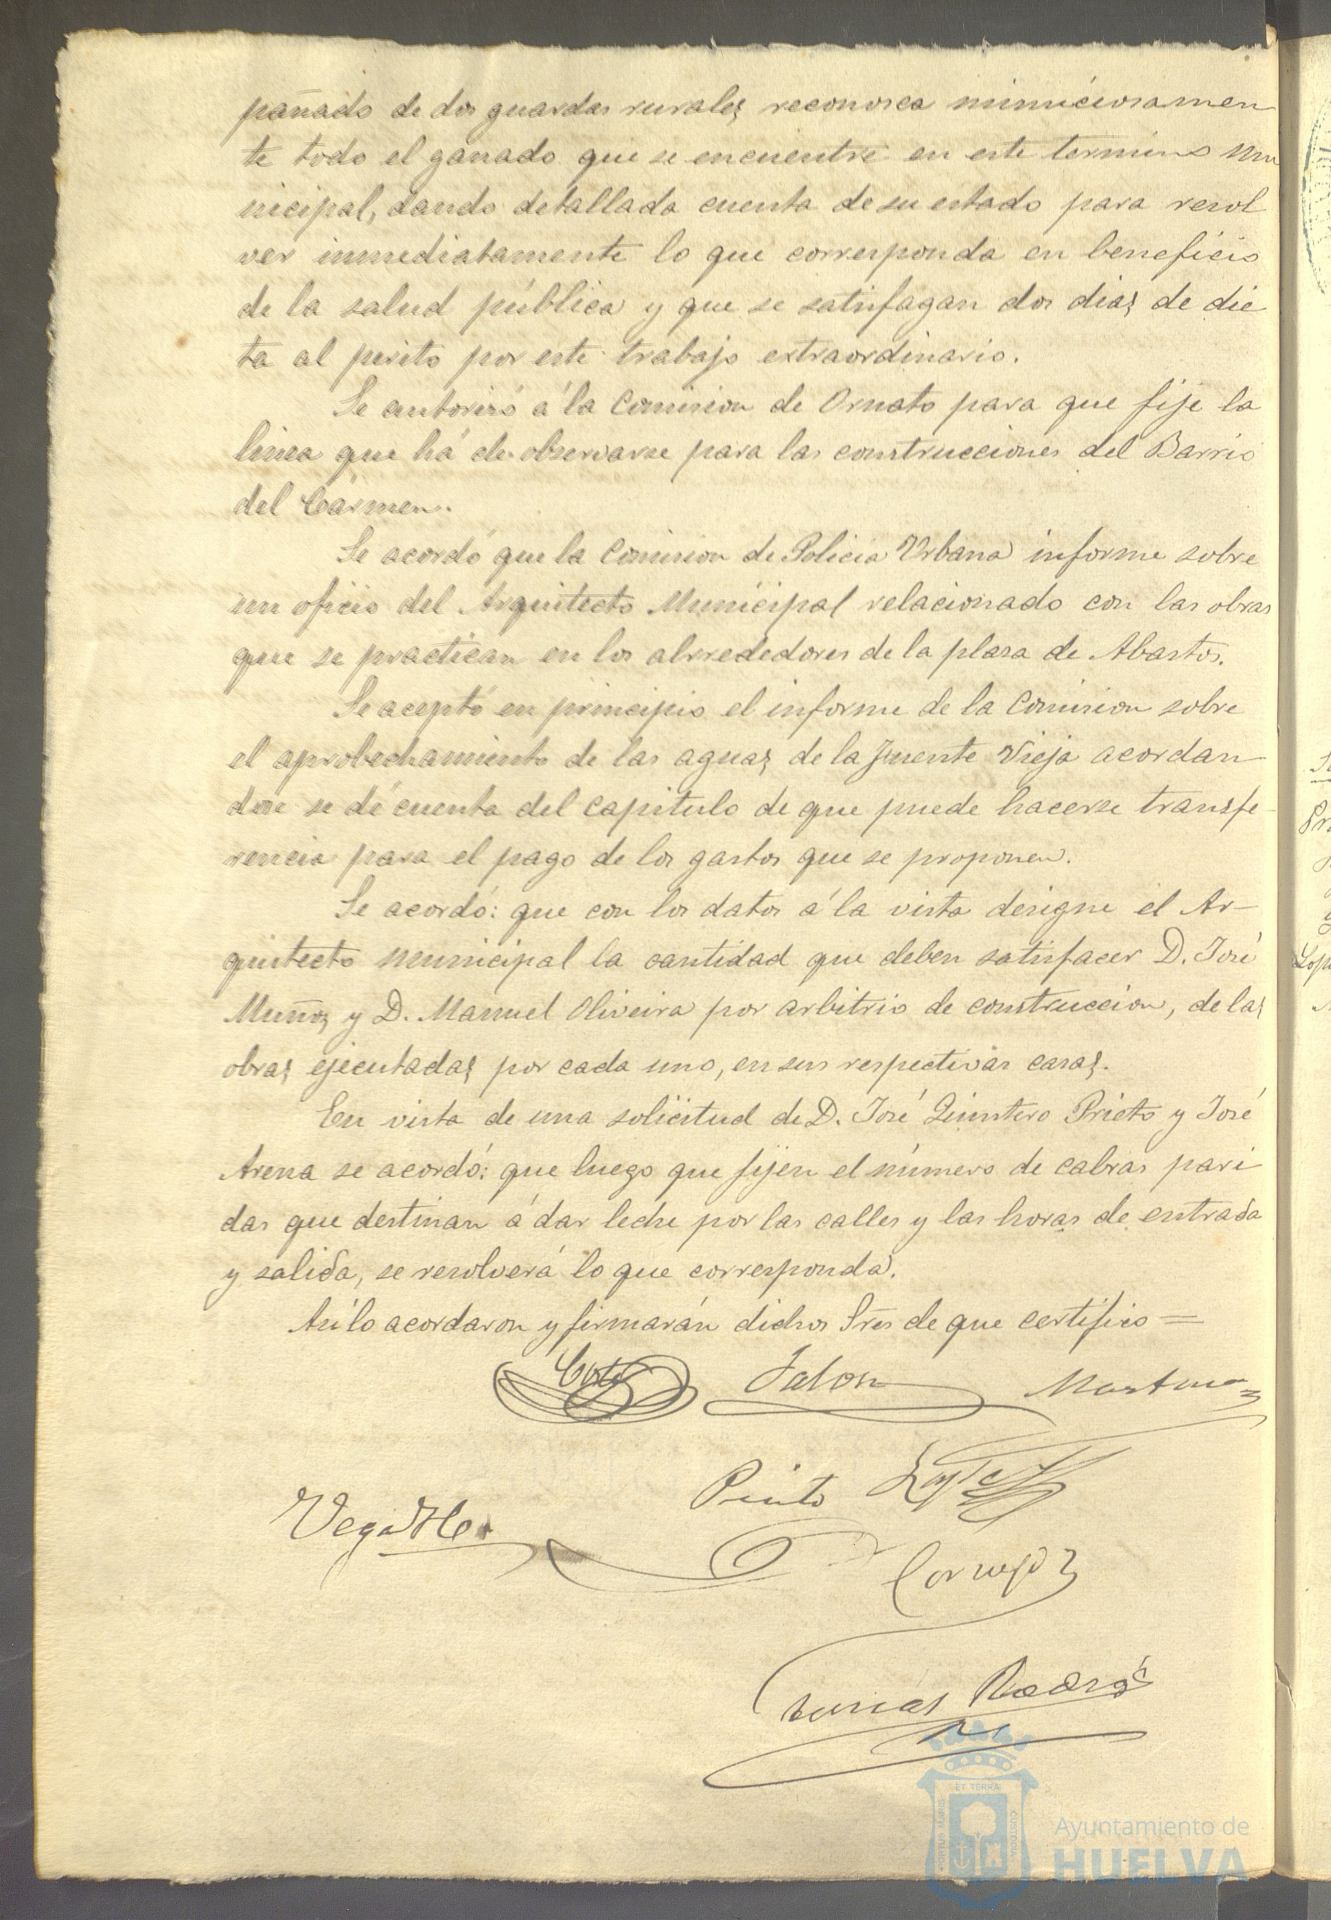 pañado de dos guardas rurales reconosca minuciosamen
te todo el ganado que se encuentre en este termino mu
nicipal, dando detallada cuenta de su estado para resol
ver inmediatamente lo que corresponda en beneficio
de la salud pública y que se satisfagan dos dias de die
ta al perito por este trabajo extraordinario.
Se autorizó á la Comision de Ornato para que fije la
linea que há de observarse para las construcciones del Barrio
del Cármen.
Se acordó que la Comision de Policia Urbana informe sobre
un oficio del Arquitecto Municipal relacionado con las obras
que se practican en los alrrededores de la plaza de Abastos.
Se aceptó en principio el informe de la Comision sobre
el aprobechamiento de las aguas de la Fuente Vieja acordan
dose se dé cuenta del capitulo de que puede hacerse transfe-
rencia para el pago de los gastos que se proponen.
Se acordó: que con los datos á la vista designe el Ar-
quitecto Municipal la cantidad que deben satisfacer D. José
Muñoz y D. Manuel Oliveira por arbitrio de construccion, de las
obras ejecutadas por cada uno, en sus respectivas casas.
En vista de una solicitud de D. José Quintero Prieto y José
Arena se acordó: que luego que fijen el número de cabras pari
das que destinan á dar leche por las calles y las horas de entrada
y salida, se resolverá lo que corresponda.
Asi lo acordaron y firmarán dichos Sres de que certifico =
Coto Jalon Martinez
Pinto
Vega
Cornejo
Tomás Rodrz
ET TERRA
CUSTODIA
PORTUS MARIS
Ayuntamiento de
HUELVA